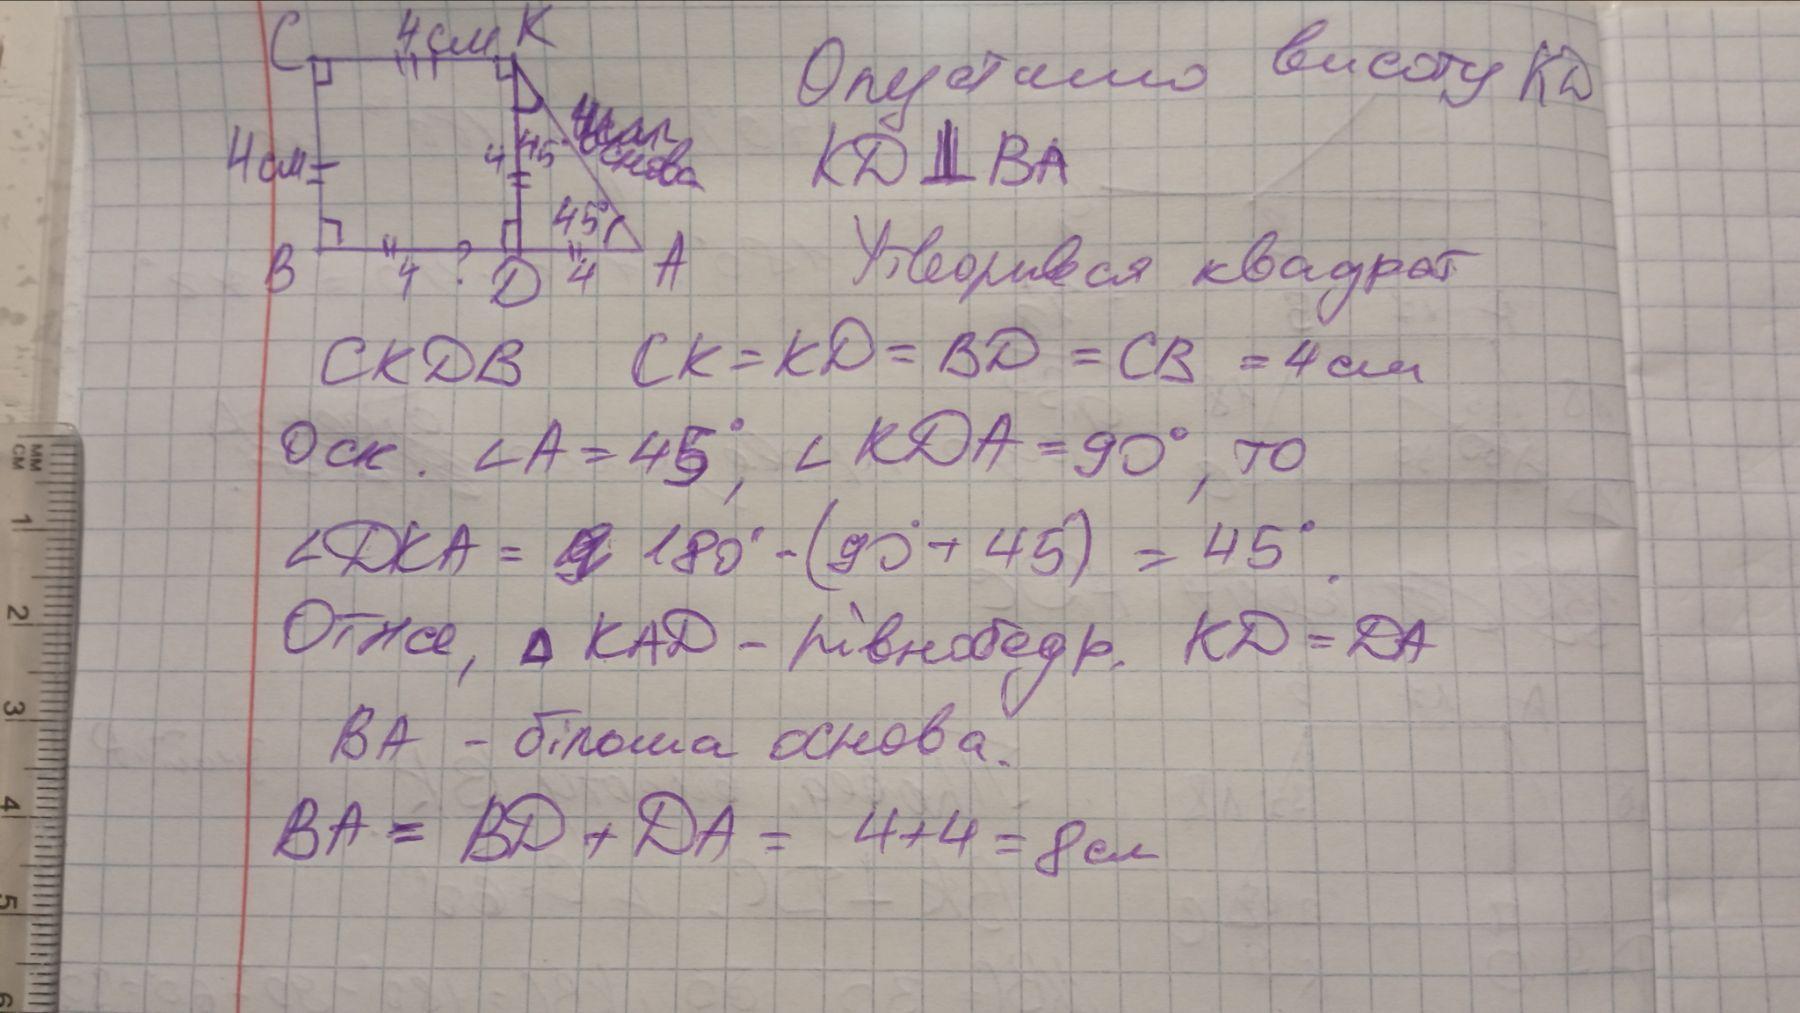 C 4см K
4см 4 45°
основа
45°
B 4 ? D 4 A
Опустимо висоту KD
KD ⊥ BA
Утворився квадрат
CKDB CK = KD = BD = CB = 4 см
Оск. ∠A = 45°, ∠KDA = 90°, то
∠DKA = 180° - (90° + 45) = 45°.
Отже, Δ KAD - рівнобедр. KD = DA
BA - більша основа.
BA = BD + DA = 4+4 = 8см
мм
см
1
2
3
4
5
6